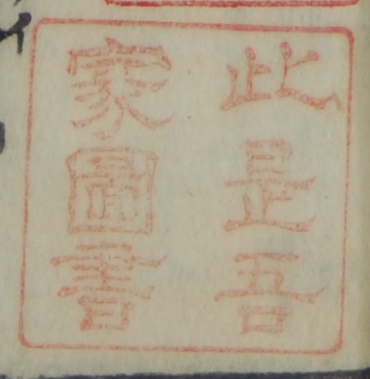 此是吾
家圖書